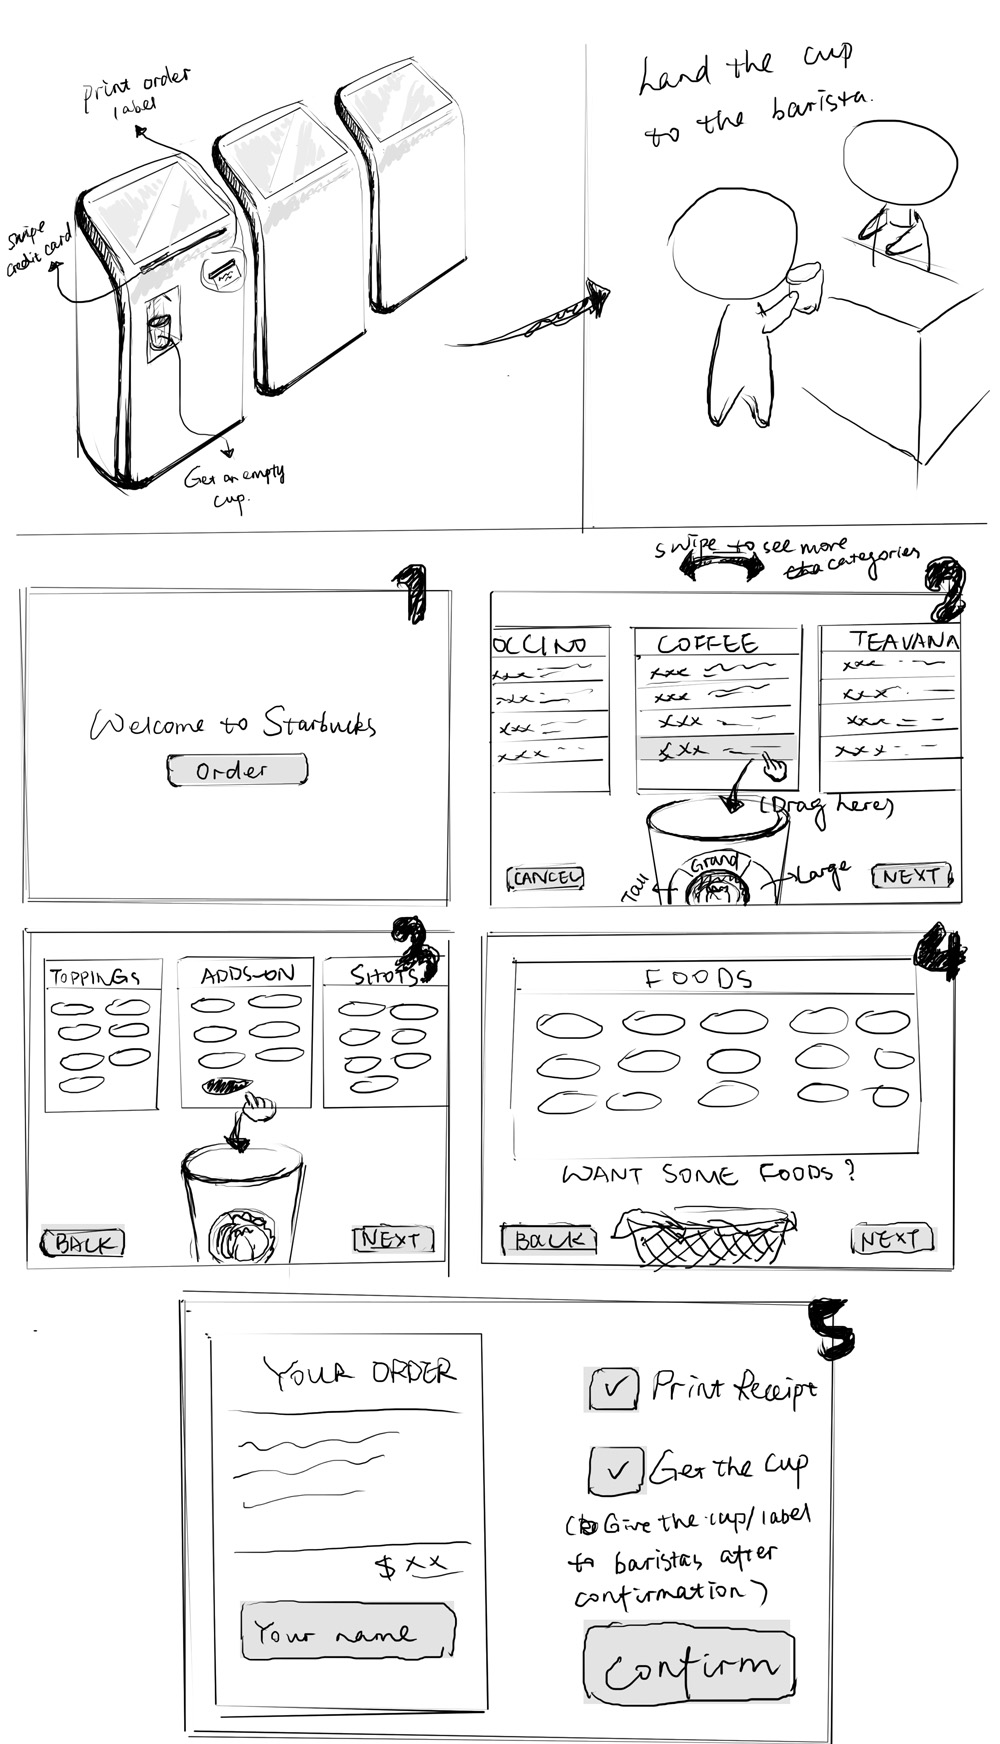 Print order
label
Swipe
credit card
Get an empty
cup.
hand the cup
to the barista.
1
Welcome to Starbucks
Order
swipe to see more
categories
2
OCCINO
COFFEE
TEAVANA
xxx
xxx
xxx
xxx
xxx
xxx
xxx
xxx
xxx
xxx
xxx
xxx
(Drag here)
Tall
Grand
Large
CANCEL
NEXT
3
TOPPINGS
ADDS-ON
SHOTS
BACK
NEXT
4
FOODS
WANT SOME FOODS?
BACK
NEXT
5
YOUR ORDER
$ xx
Your name
Print Receipt
Get the cup
(Give the cup/label
to baristas after
confirmation)
Confirm